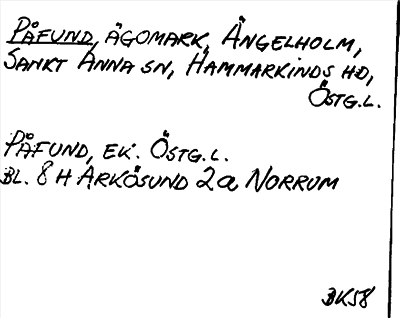 PÅFUND, ÄGOMARK, ÄNGELHOLM,
SANKT ANNA SN, HAMMARKINDS HD,
ÖSTG.L.
PÅFUND, EK. ÖSTG.L.
BL. 8 H ARKÖSUND 2a NORRUM
BK58